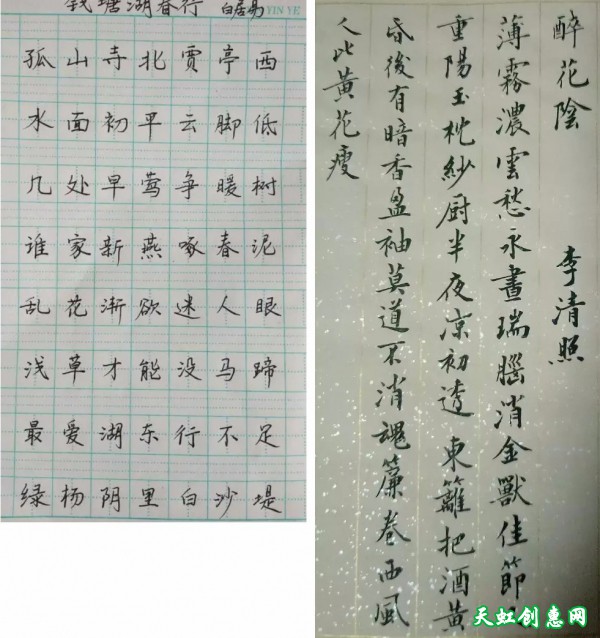 钱塘湖春行 白居易 YIN YE
孤山寺北贾亭西
水面初早云脚低
几处早莺争暖树
谁家新燕啄春泥
乱花渐欲迷人眼
浅草才能没马蹄
最爱湖东行不足
绿杨阴里白沙堤
醉花陰 李清照
薄霧濃雲愁永晝瑞腦消金獸佳節
重陽玉枕紗厨半夜凉初透東籬把酒黄
昏後有暗香盈袖莫道不消魂簾卷西風
人比黄花瘦
天虹创惠网